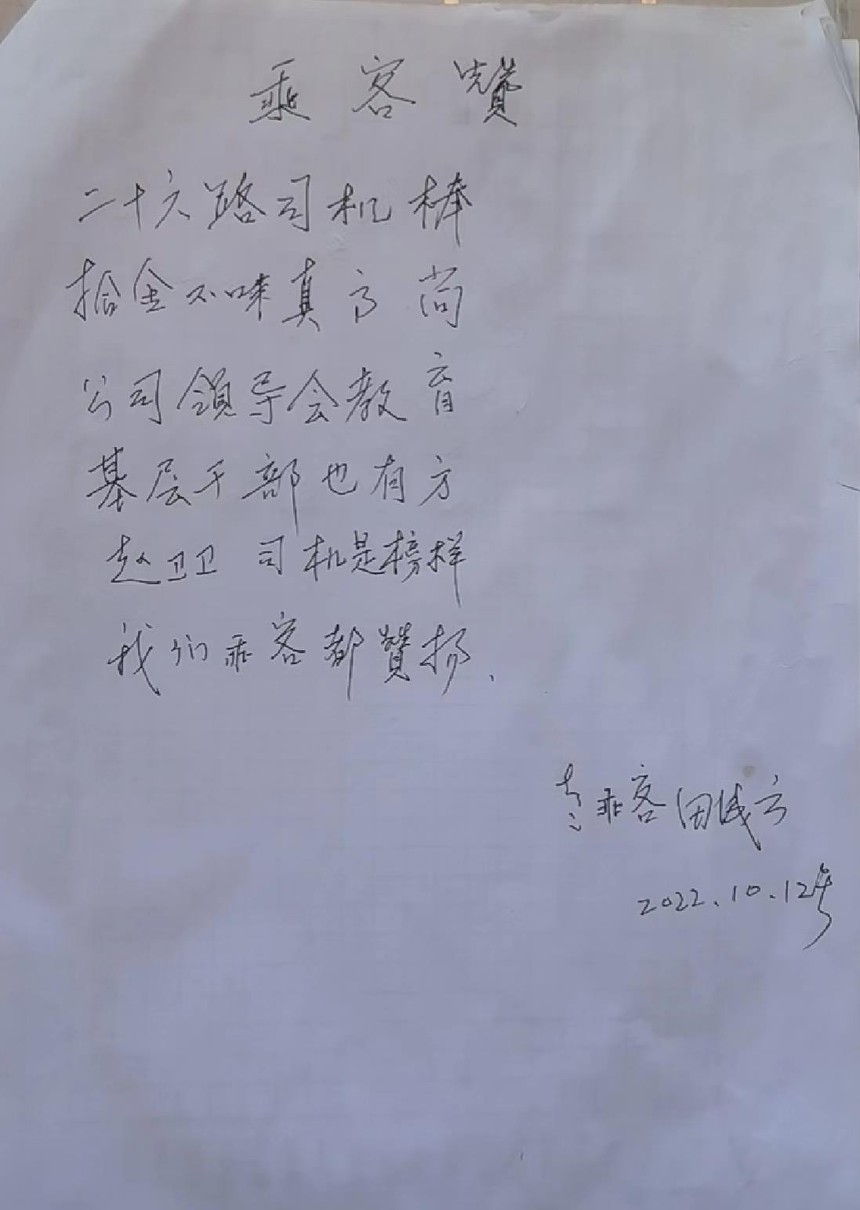 乘客赞
二十六路司机棒
拾金不昧真高尚
公司领导会教育
基层干部也有方
赵卫卫 司机是榜样
我们乘客都赞扬、
乘客田
2022.10.12号